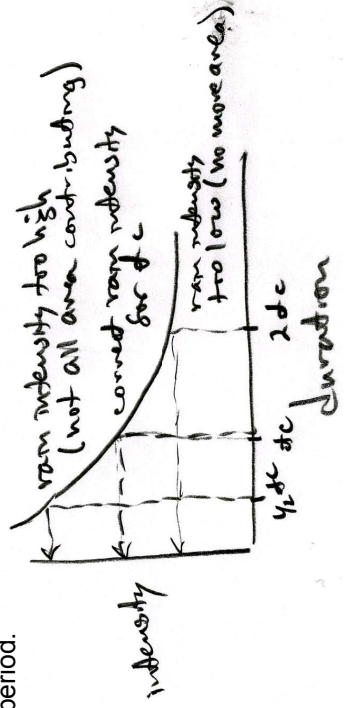 period.
rain intensity too high
(not all area contributing)
correct rain intensity
for tc
rain intensity
too low (no more area)
intensity
1/2 tc
tc
2 tc
duration